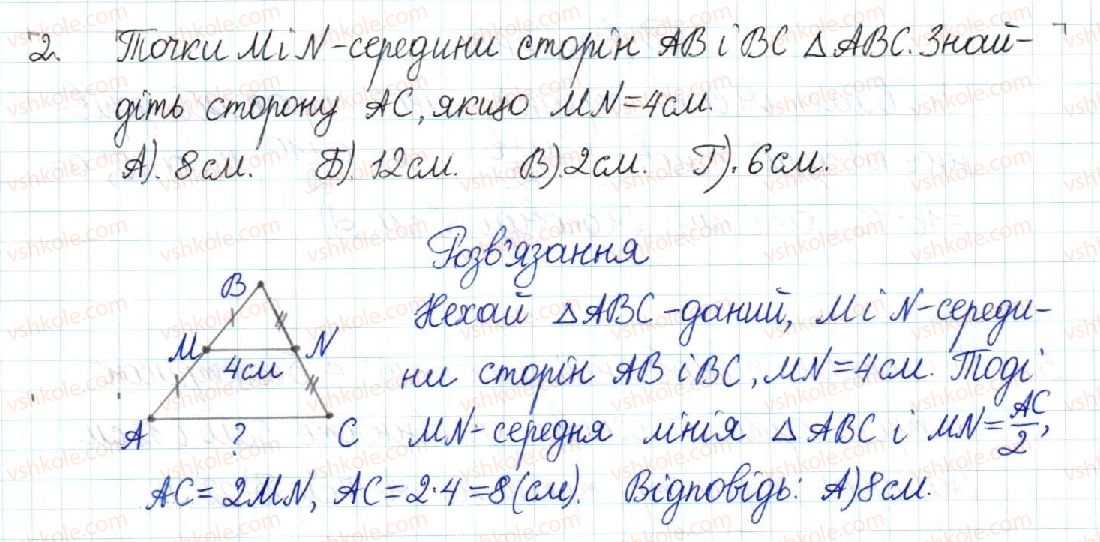 2. Точки M і N - середини сторін AB і BC △ABC. Знай-
діть сторону AC, якщо MN = 4см.
А). 8см. Б). 12см. В). 2см. Г). 6см.
Розв'язання
B
Нехай △ABC - даний, M і N - середи-
M N
4см
ни сторін AB і BC, MN = 4см. Тоді
A ? C
MN - середня лінія △ABC і MN = AC/2,
AC = 2MN, AC = 2·4 = 8(см). Відповідь: А) 8см.